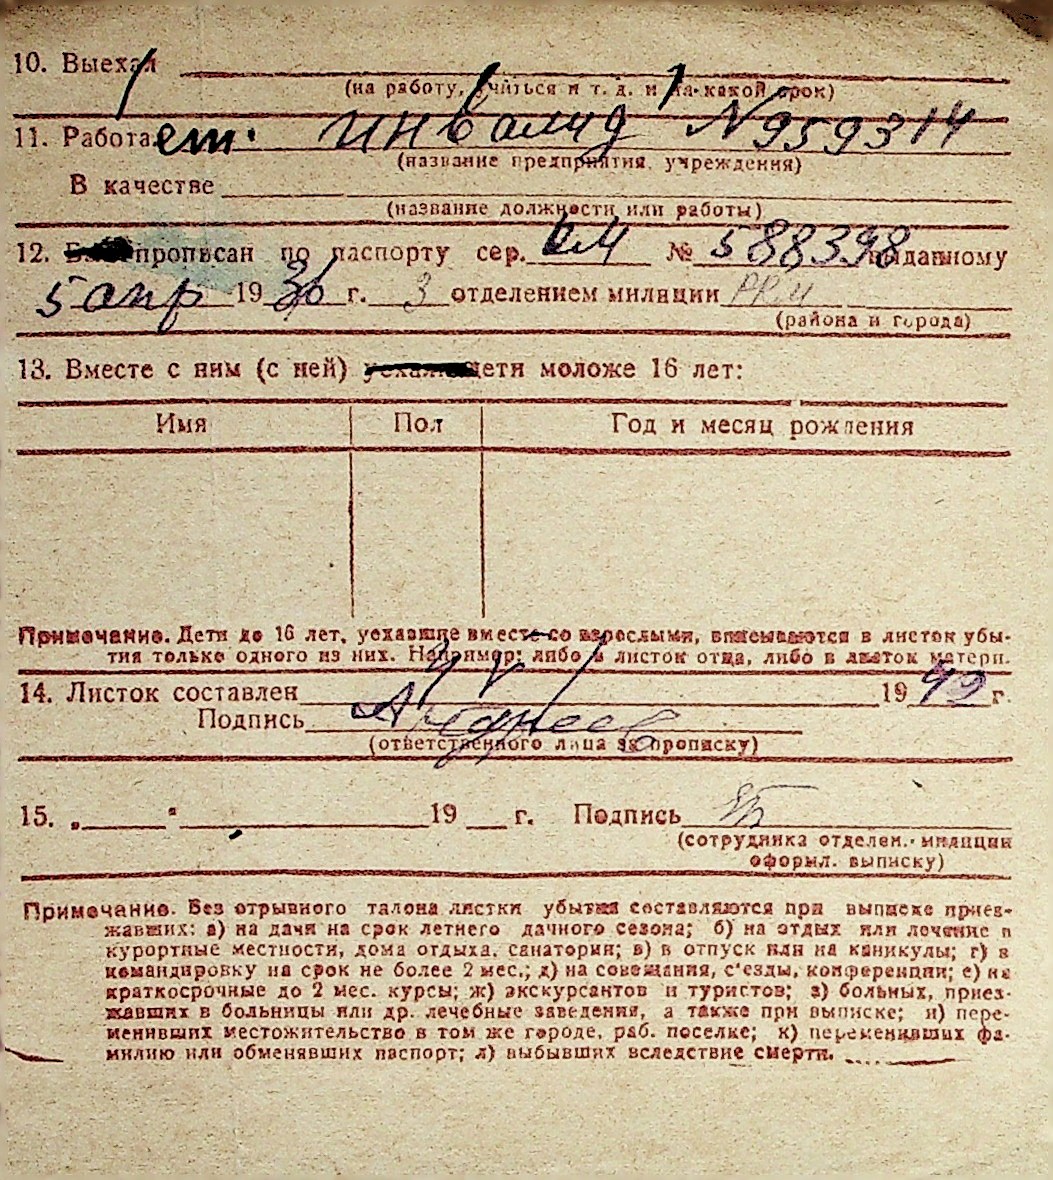 10. Выехал
(на работу, учиться и т. д. и на какой срок)
11. Работает. инвалид № 959314
(название предприятия, учреждения)
В качестве
(название должности или работы)
12. прописан по паспорту сер. № 588398 выданному
5 апр 1936 г. 3 отделением милиции РКМ
(района и города)
13. Вместе с ним (с ней) уехали дети моложе 16 лет:
Имя Пол Год и месяц рождения
Примечание. Дети до 16 лет, уехавшие вместе со взрослыми, вписываются в листок убы-
тия только одного из них. Например: либо в листок отца, либо в листок матери.
14. Листок составлен 1942 г.
Подпись Андреев
(ответственного лица за прописку)
15. „ “ 19 г. Подпись
(сотрудника отделен. милиции
оформл. выписку)
Примечание. Без отрывного талона листки убытия составляются при выписке приез-
жавших: а) на дачи на срок летнего дачного сезона; б) на отдых или лечение в
курортные местности, дома отдыха, санатории; в) в отпуск или на каникулы; г) в
командировку на срок не более 2 мес.; д) на совещания, с'езды, конференции; е) на
краткосрочные до 2 мес. курсы; ж) экскурсантов и туристов; з) больных, приез-
жавших в больницы или др. лечебные заведения, а также при выписке; и) пере-
менивших местожительство в том же городе, раб. поселке; к) переменивших фа-
милию или обменявших паспорт; л) выбывших вследствие смерти.